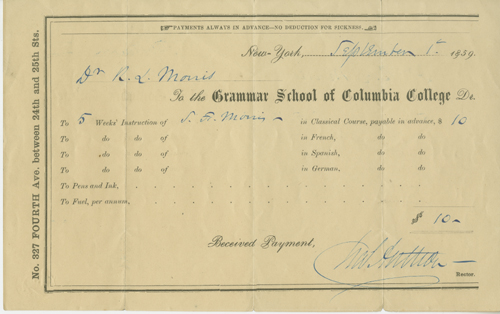 PAYMENTS ALWAYS IN ADVANCE—NO DEDUCTION FOR SICKNESS.
New-York, September 1st 1859.
Dr R. L. Morris
To the Grammar School of Columbia College Dr.
To 5 Weeks' Instruction of S. F. Morris in Classical Course, payable in advance, $ 10
To do do of in French, do do
To do do of in Spanish, do do
To do do of in German, do do
To Pens and Ink,
To Fuel, per annum,
$ 10
Received Payment,
Rector.
No. 327 FOURTH Ave. between 24th and 25th Sts.